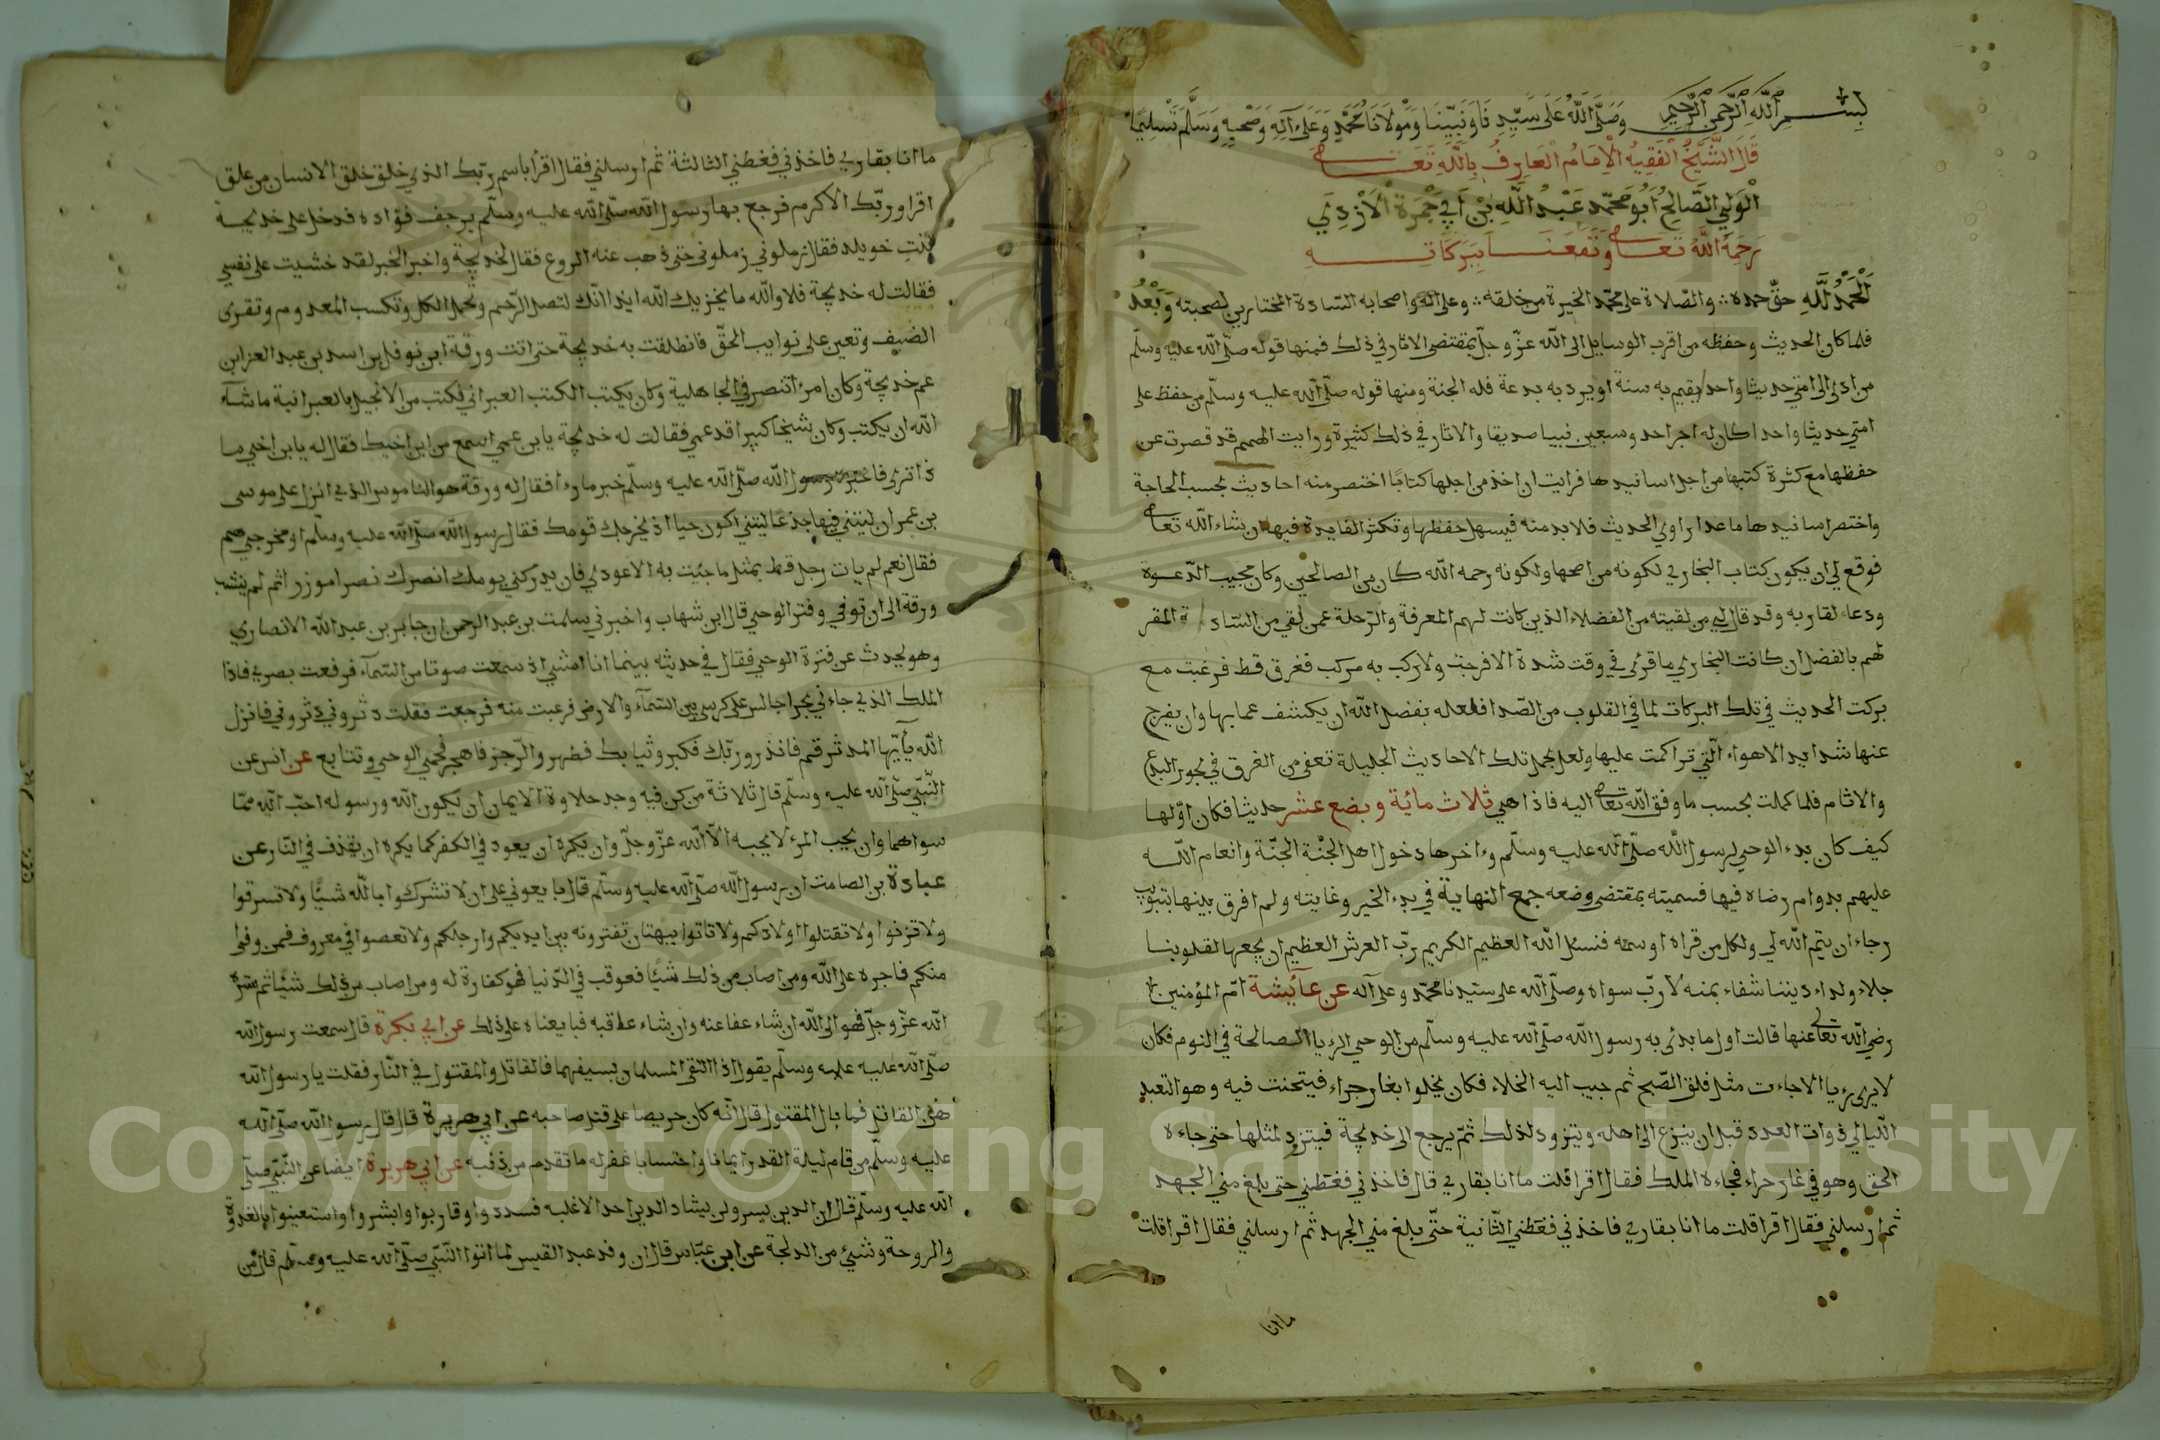 بسم الله الرحمن الرحيم وصلى الله على سيدنا ونبينا ومولانا محمد وعلى آله وصحبه وسلم تسليما
قال الشيخ الفقيه الامام العارف بالله تعالى
الولي الصالح ابو محمد عبد الله بن ابي جمرة الازدي
رحمه الله تعالى ونفعنا ببركاته
الحمد لله حق حمده والصلاة على محمد الخيرة من خلقه وعلى اله واصحابه السادة المختارين لصحبته وبعد
فلما كان الحديث وحفظه من اقرب الوسايل الى الله عز وجل بمقتضى الاثار في ذلك فمنها قوله صلى الله عليه وسلم
من ادى الى امتي حديثا واحدا يقيم به سنة او يرد به بدعة فله الجنة ومنها قوله صلى الله عليه وسلم من حفظ على
امتي حديثا واحدا كان له اجر احد وسبعين نبيا صديقا والاثار في ذلك كثيرة ورايت الهمم قد قصرت عن
حفظها مع كثرة كتبها من اجل اسانيدها فرايت ان اخذ من اجلها كتابا اختصر منه احاديث بحسب الحاجة
واختصر اسانيدها ما عدا راوي الحديث فلا بد منه فيسهل حفظها وتكثر الفايدة فيها ان شاء الله تعالى
فوقع لي ان يكون كتاب البخاري لكونه من اصحها ولكونه رحمه الله كان من الصالحين وكان مجيب الدعوة
ودعا لقاريه وقد قال لي من لقيته من الفضلاء الذين كانت لهم المعرفة والرحلة عمن لقي من السادة المقر
لهم بالفضل ان كانت البخاري ما قرئ في وقت شدة الا فرجت ولا ركب به مركب فغرق قط فرغبت مع
بركت الحديث في تلك البركات لما في القلوب من الصدا فلعله بفضل الله ان يكشف عما بها وان يفرج
عنها شدايد الاهواء التي تراكمت عليها ولعل بحمل تلك الاحاديث الجليلة تعفى من الغرق في بحور البدع
والاثام فلما كملت بحسب ما وفق الله تعالى اليه فاذا هي ثلاث مائية وبضع عشر حديثا فكان اولها
كيف كان بدء الوحي لرسول الله صلى الله عليه وسلم وءاخرها دخول اهل الجنة الجنة وانعام الله
عليهم بدوام رضاه فيها فسميته بمقتضى وضعه جمع النهاية في بدء الخير وغايته ولم افرق بينها بتبويب
رجاء ان يتم الله لي ولكل من قراه او سمعه فنسئل الله العظيم الكريم رب العرش العظيم ان يجعلها لقلوبنا
جلاء ولداء ديننا شفاء بمنه لا رب سواه وصلى الله على سيدنا محمد وعلى آله عن عآئشة ام المؤمنين
رضي الله تعالى عنها قالت اول ما بدئ به رسول الله صلى الله عليه وسلم من الوحي الرءيا الصالحة في النوم فكان
لا يرى رءيا الا جاءت مثل فلق الصبح ثم حبب اليه الخلاء فكان يخلوا بغار حراء فيتحنث فيه وهو التعبد
الليالي ذوات العدد قبل ان ينزع الى اهله ويتزود لذلك ثم يرجع الى خديجة فيتزود لمثلها حتى جاءه
الحق وهو في غار حراء فجاءه الملك فقال اقرا قلت ما انا بقاري قال فاخذني فغطني حتى بلغ مني الجهد
ثم ارسلني فقال اقرا قلت ما انا بقاري فاخذني فغطني الثانية حتى بلغ مني الجهد ثم ارسلني فقال اقرا قلت
ما انا
ما انا بقاري فاخذني فغطني الثالثة ثم ارسلني فقال اقرا باسم ربك الذي خلق خلق الانسان من علق
اقرا وربك الاكرم فرجع بها رسول الله صلى الله عليه وسلم يرجف فؤاده فدخل على خديجة
بنت خويلد فقال زملوني زملوني حتى ذهب عنه الروع فقال لخديجة واخبرها الخبر لقد خشيت على نفسي
فقالت له خديجة فلا والله ما يخزيك الله ابدا انك لتصل الرحم وتحمل الكل وتكسب المعدوم وتقرى
الضيف وتعين على نوايب الحق فانطلقت به خديجة حتى اتت ورقة ابن نوفل بن اسد بن عبد العزى ابن
عم خديجة وكان امرءا تنصر في الجاهلية وكان يكتب الكتب العبراني فكتب من الانجيل بالعبرانية ما شآء
الله ان يكتب وكان شيخا كبيرا قد عمي فقالت له خديجة يا بن عمي اسمع من ابن اخيك فقال له يا بن اخي ما
ذا ترى فاخبره رسول الله صلى الله عليه وسلم خبر ما رءا فقال له ورقة هو الناموس الذي انزل على موسى
بن عمران ليتني فيها جذعا ليتني اكون حيا اذ يخرجك قومك فقال رسول الله صلى الله عليه وسلم او مخرجي هم
فقال نعم لم يات رجل قط بمثل ما جئت به الا عودي فان يدركني يومك انصرك نصرا موزرا ثم لم ينشب
ورقة الى ان توفي وفتر الوحي قال ابن شهاب واخبرني سلمت بن عبد الرحمن ان جابر بن عبد الله الانصاري
وهو يحدث عن فترة الوحي فقال في حديثه بينما انا امشي اذ سمعت صوتا من السمآء فرفعت بصري فاذا
الملك الذي جاءني بحرا جالس على كرسي بين السمآء والارض فرعبت منه فرجعت فقلت دثروني دثروني فانزل
الله يأيها المدثر قم فانذر وربك فكبر وثيابك فطهر والرجز فاهجر فحمي الوحي وتتابع عن انس عن
النبي صلى الله عليه وسلم قال ثلاثة من كن فيه وجد حلاوة الايمان ان يكون الله ورسوله احب اليه مما
سواهما وان يحب المرء لا يحبه الا الله عز وجل وان يكره ان يعود في الكفر كما يكره ان يقذف في النار عن
عبادة بن الصامت ان رسول الله صلى الله عليه وسلم قال بايعوني على ان لا تشركوا بالله شيئا ولا تسرقوا
ولا تزنوا ولا تقتلوا اولادكم ولا تاتوا ببهتان تفترونه بين ايديكم وارجلكم ولا تعصوا في معروف فمن وفى
منكم فاجره على الله ومن اصاب من ذلك شيئا فعوقب في الدنيا فهو كفارة له ومن اصاب من ذلك شيئا ثم ستره
الله عز وجل فهو الى الله ان شاء عفا عنه وان شاء عاقبه فبايعناه على ذلك عن ابي بكرة قال سمعت رسول الله
صلى الله عليه وسلم يقول اذا التقى المسلمان بسيفهما فالقاتل والمقتول في النار فقلت يا رسول الله
هذا القاتل فما بال المقتول قال انه كان حريصا على قتل صاحبه عن ابي هريرة قال قال رسول الله صلى الله
عليه وسلم من قام ليلة القدر ايمانا واحتسابا غفر له ما تقدم من ذنبه عن ابي هريرة ايضا عن النبي صلى
الله عليه وسلم قال ان الدين يسر ولن يشاد الدين احد الا غلبه فسددوا وقاربوا وابشروا واستعينوا بالغدوة
والروحة وشيئ من الدلجة عن ابن عباس قال ان وفد عبد القيس لما اتوا النبي صلى الله عليه وسلم قال من
Copyright © King Saud University
1957